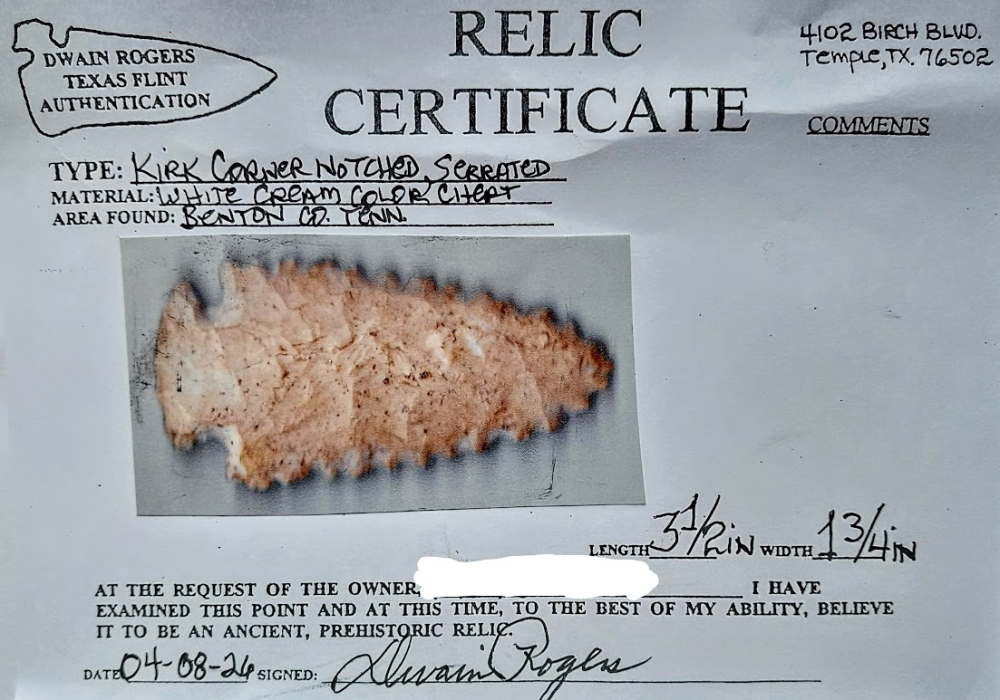 DWAIN ROGERS
TEXAS FLINT
AUTHENTICATION
RELIC
CERTIFICATE
4102 BIRCH BLVD.
Temple, TX. 76502
COMMENTS
TYPE: KIRK CORNER NOTCHED, SERRATED
MATERIAL: WHITE CREAM COLOR CHERT
AREA FOUND: BENTON CO. TENN.
LENGTH 3 1/2 IN WIDTH 1 3/4 IN
AT THE REQUEST OF THE OWNER, I HAVE
EXAMINED THIS POINT AND AT THIS TIME, TO THE BEST OF MY ABILITY, BELIEVE
IT TO BE AN ANCIENT, PREHISTORIC RELIC.
DATE 04-08-26 SIGNED: Dwain Rogers